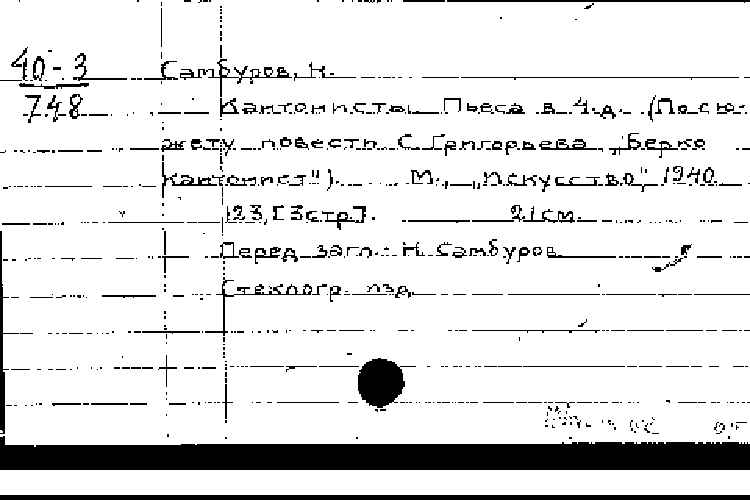 40-3
748
Самбуров, Н.
Кантонисты. Пьеса в 4 д. (По сю-
жету повести С. Григорьева „Берко
кантонист"). М., „Искусство", 1940
123, [3 стр]. 21 см.
Перед загл.: Н. Самбуров
Стеклогр. изд.